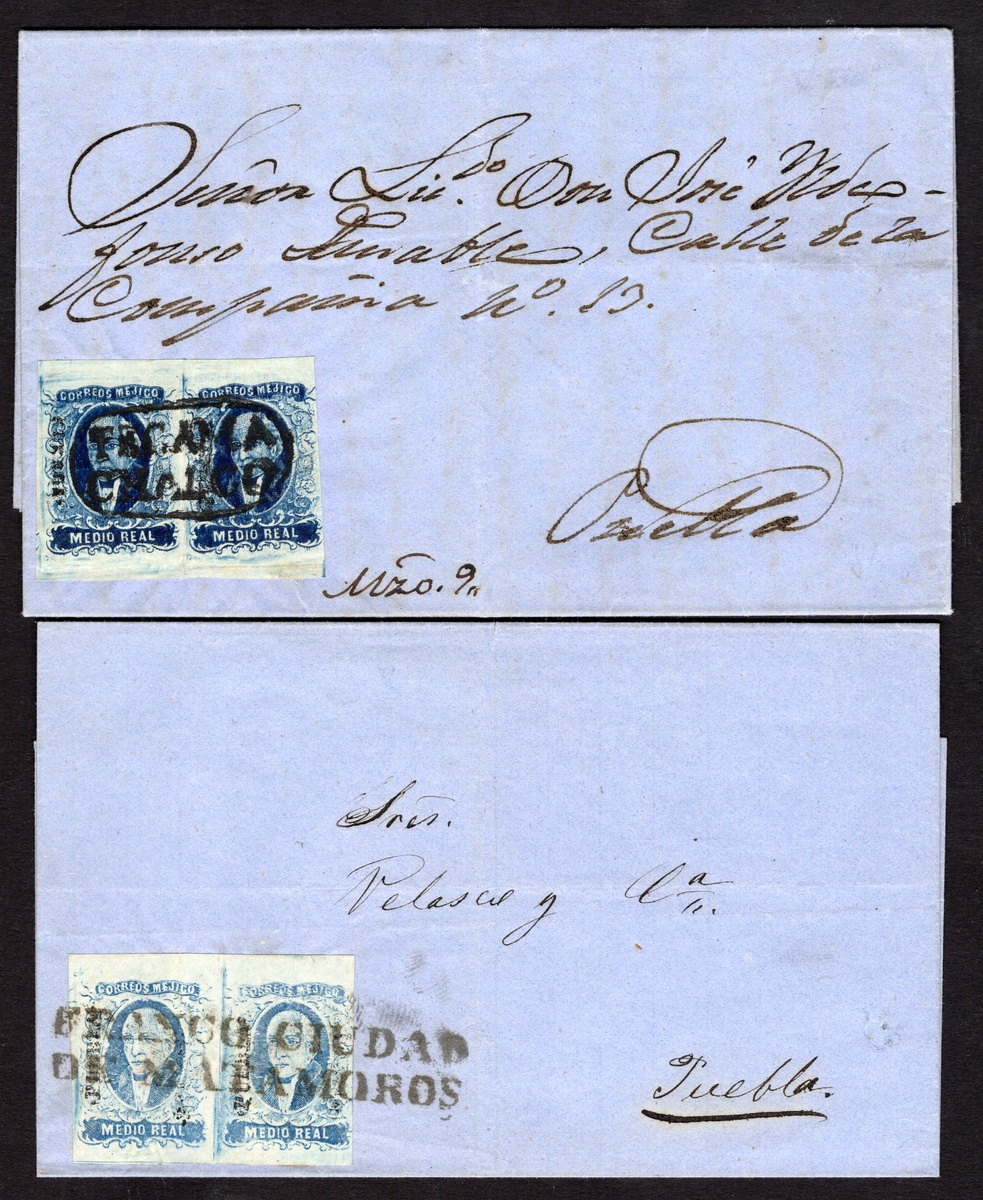 Señor Licdo. Don José Yldef-
fonso Amable, Calle de la
Compañia No. 13.
CORREOS MEJICO CORREOS MEJICO
TECAMA
CHALCO
MEDIO REAL MEDIO REAL
Puebla
Mzo. 9
Sres.
Velasco y Ca.
CORREOS MEJICO CORREOS MEJICO
FRANCO CIUDAD
DE MATAMOROS
PUEBLA PUEBLA
MEDIO REAL MEDIO REAL
Puebla.